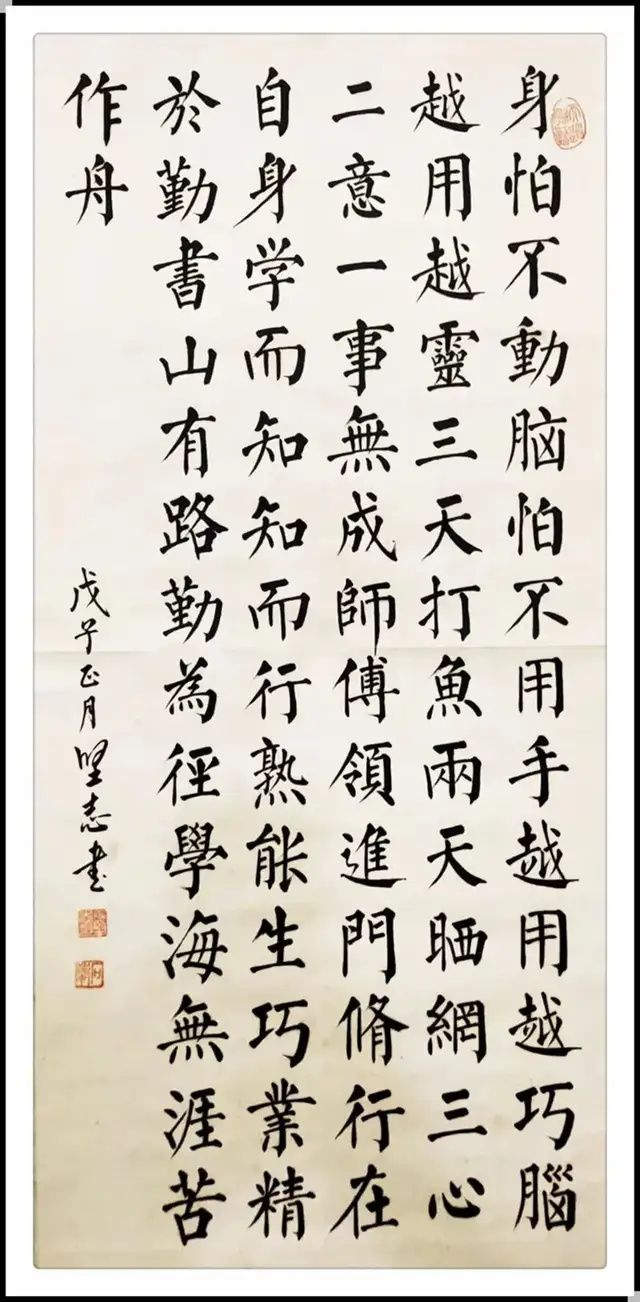 身怕不動脑怕不用手越用越巧腦
越用越靈三天打魚兩天晒網三心
二意一事無成師傅領進門脩行在
自身学而知知而行熟能生巧業精
於勤書山有路勤為徑學海無涯苦
作舟
戊子正月坚志書